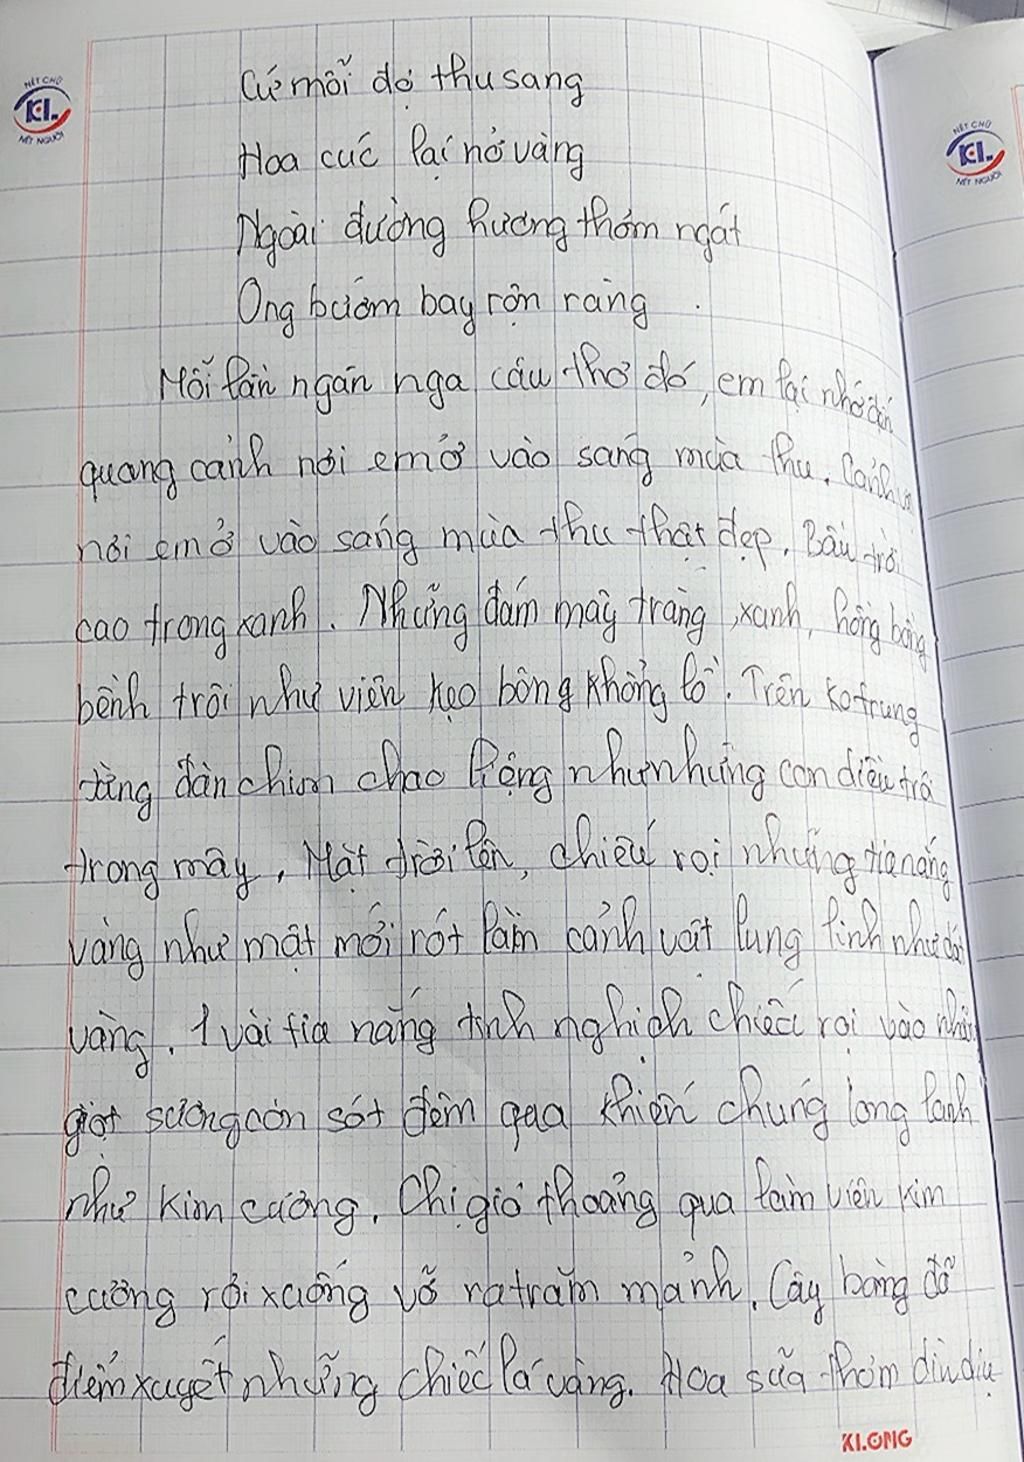 NÉT CHỮ
KL.
NẾT NGƯỜI
NÉT CHỮ
KL.
NẾT NGƯỜI
Cứ mỗi độ thu sang
Hoa cúc lại nở vàng
Ngoài đường hương thơm ngát
Ong bướm bay rộn ràng
Mỗi lần ngân nga câu thơ đó, em lại nhớ đến
quang cảnh nơi em ở vào sáng mùa thu. Cảnh
nơi em ở vào sáng mùa thu thật đẹp. Bầu trời
cao trong xanh. Những đám mây trắng, xanh, hồng bồng
bềnh trôi như viên kẹo bông khổng lồ. Trên ko trung
từng đàn chim chao liệng như những con diều trôi
trong mây. Mặt trời lên, chiếu rọi những tia nắng
vàng như mật mới rót làm cảnh vật lung linh như dát
vàng. 1 vài tia nắng tinh nghịch chiếu rọi vào những
giọt sương còn sót đêm qua khiến chúng long lanh
như kim cương. Chị gió thoảng qua làm viên kim
cương rơi xuống vỡ ra trăm mảnh. Cây bàng đỗ
điểm xuyết những chiếc lá vàng. Hoa sữa thơm dìu dịu
KLONG